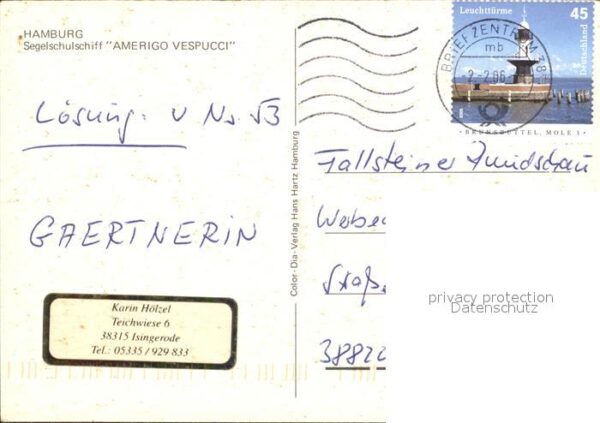 HAMBURG
Segelschulschiff "AMERIGO VESPUCCI"
Lösung: v No 53
GAERTNERIN
Karin Hölzel
Teichwiese 6
38315 Isingerode
Tel.: 05335 / 929 833
Color-Dia-Verlag Hans Hartz Hamburg
Leuchttürme 45
Deutschland
BRIEFZENTRUM 38
mb
-2.-2.06-
BRUNSBÜTTEL, MOLE 1
Fallsteiner Rundschau
Weber
Straß
38822
privacy protection
Datenschutz